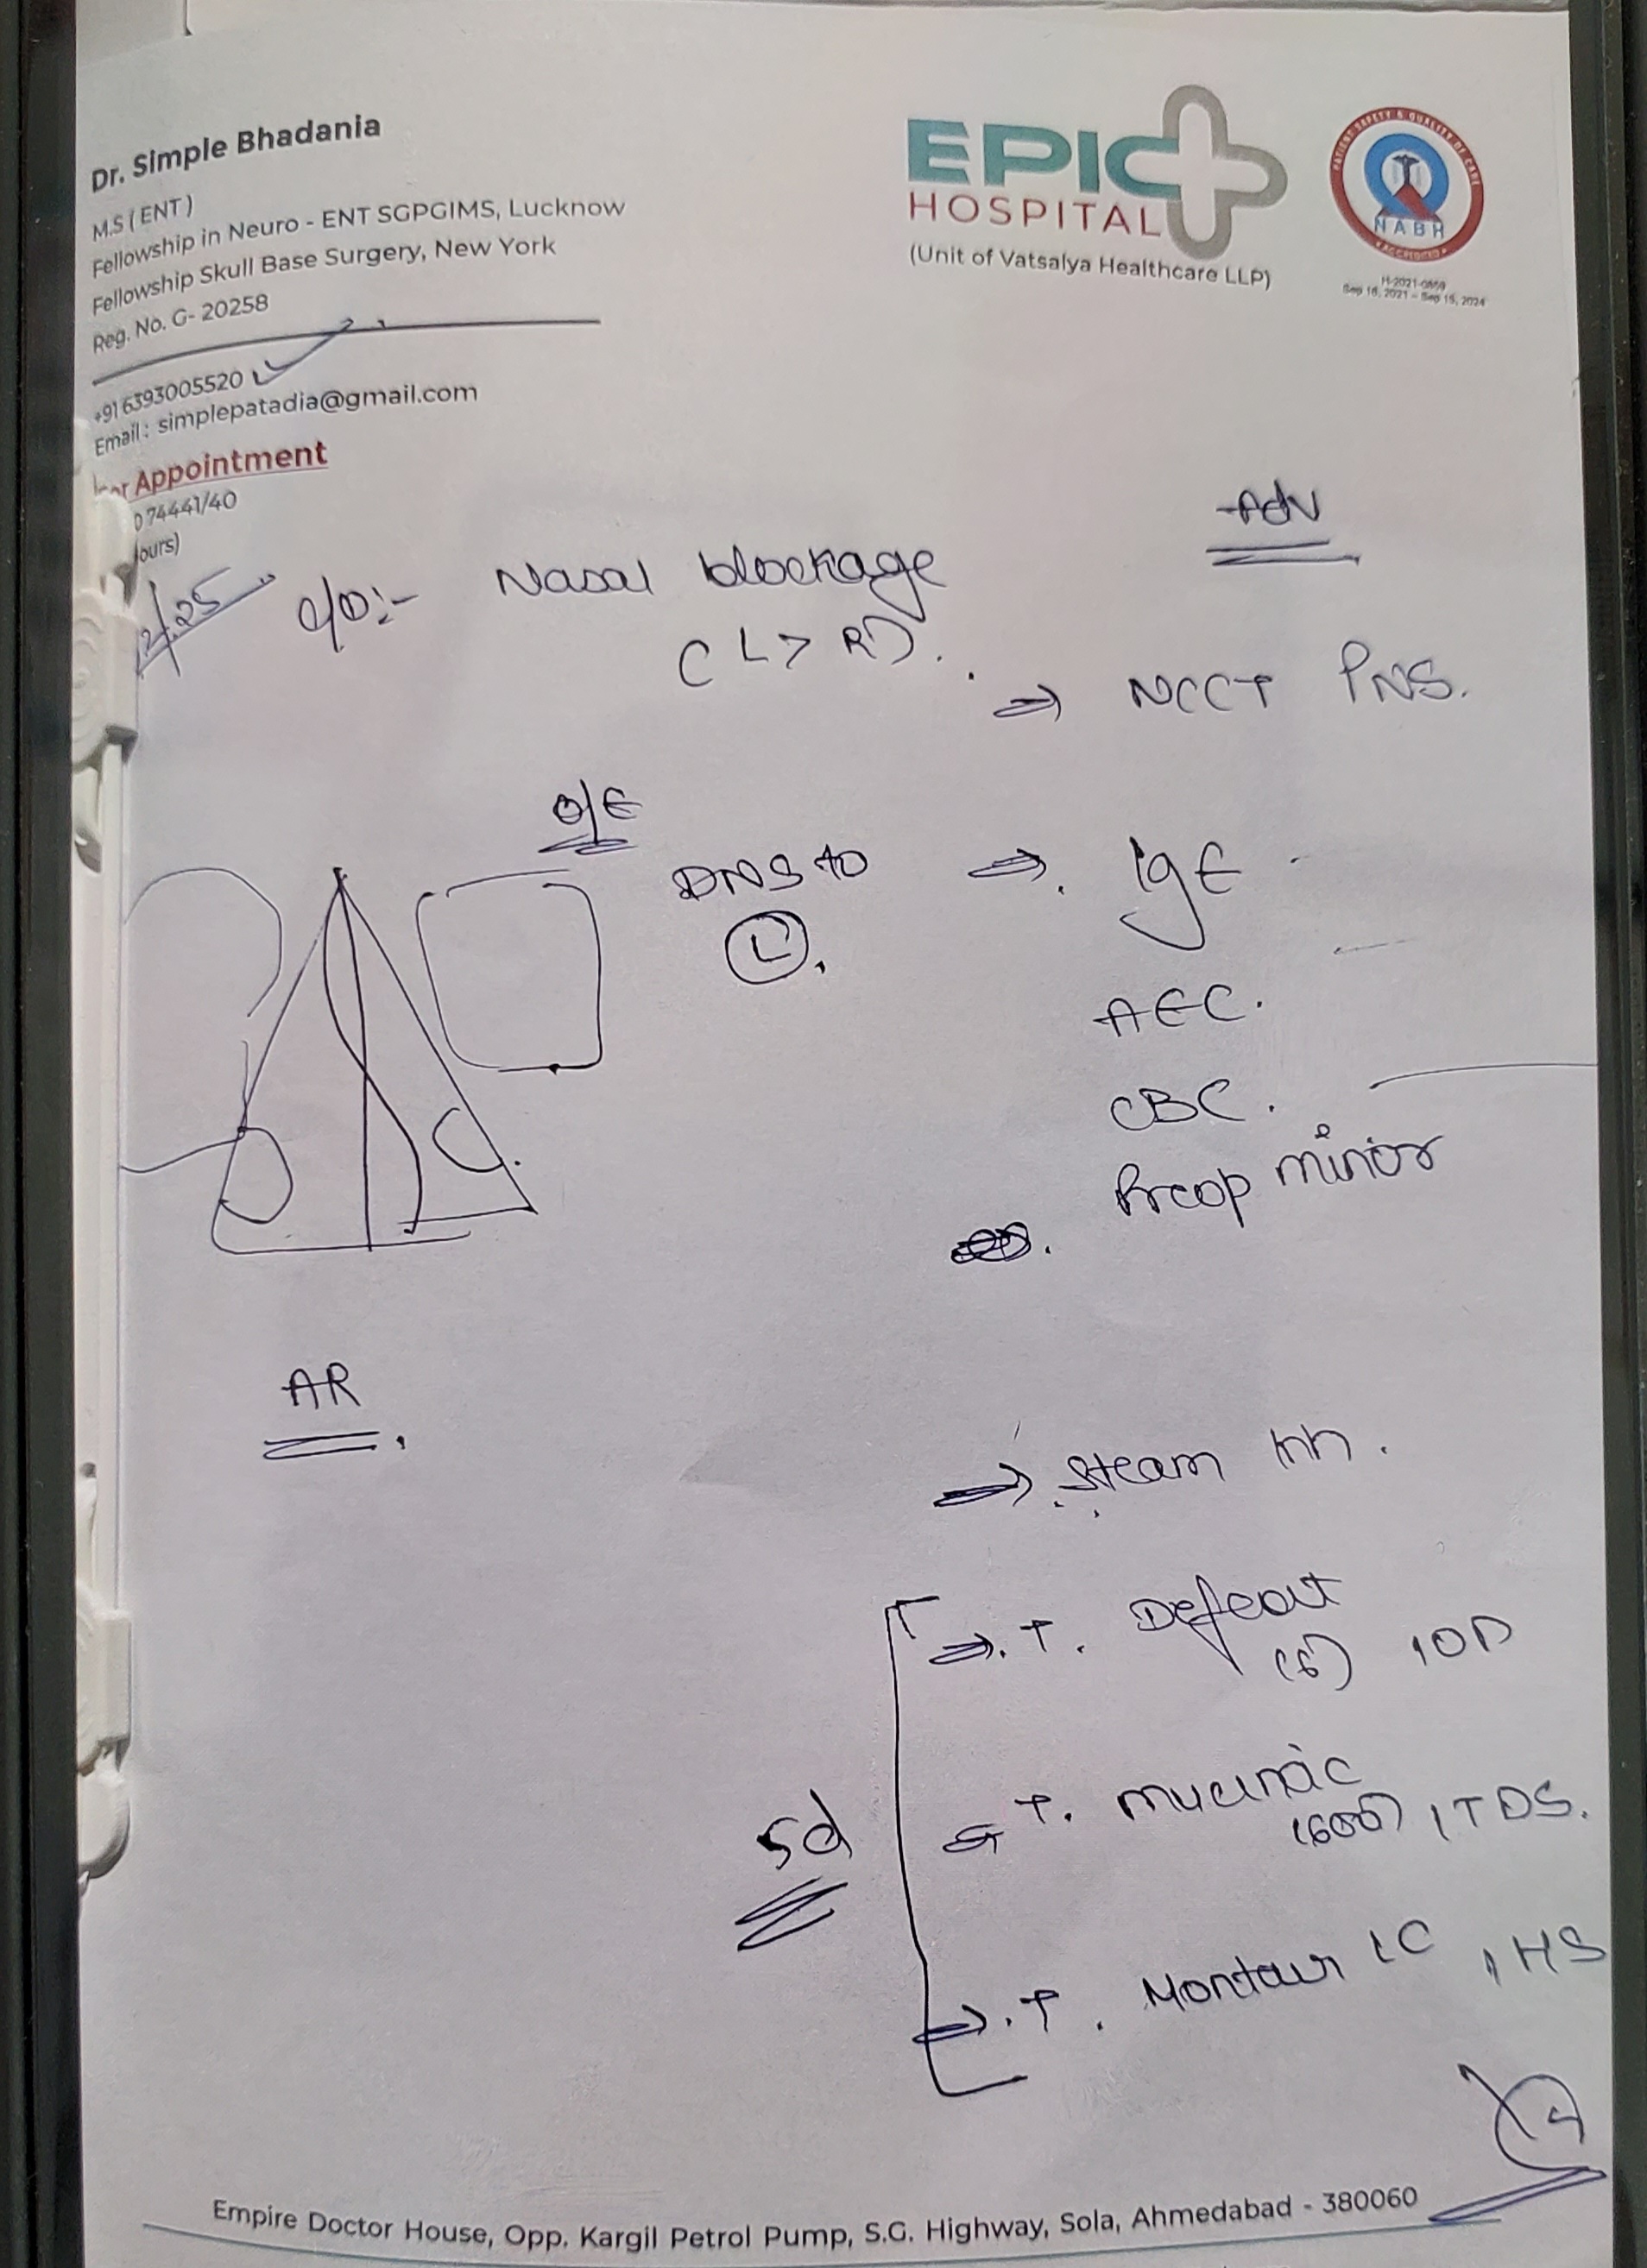 Dr. Simple Bhadania
M.S ( ENT )
Fellowship in Neuro - ENT SGPGIMS, Lucknow
Fellowship Skull Base Surgery, New York
Reg. No. G- 20258
+91 6393005520
Email : simplepatadia@gmail.com
Appointment
74441/40
EPIC
HOSPITAL
(Unit of Vatsalya Healthcare LLP)
PATIENT SAFETY & QUALITY OF CARE
NABH
ACCREDITED
H-2021-0869
Sep 16, 2021 - Sep 15, 2024
2/25
c/o:- Nasal blockage
(L > R).
O/E
DNS to
(L).
AR
Adv
⇒ NCCT PNS.
⇒ IgE
AEC.
CBC.
Preop minor
→ Steam Inh.
5d
→ T. (6) 1OD
T. (600) 1TDS.
→ T. LC 1HS
Empire Doctor House, Opp. Kargil Petrol Pump, S.G. Highway, Sola, Ahmedabad - 380060